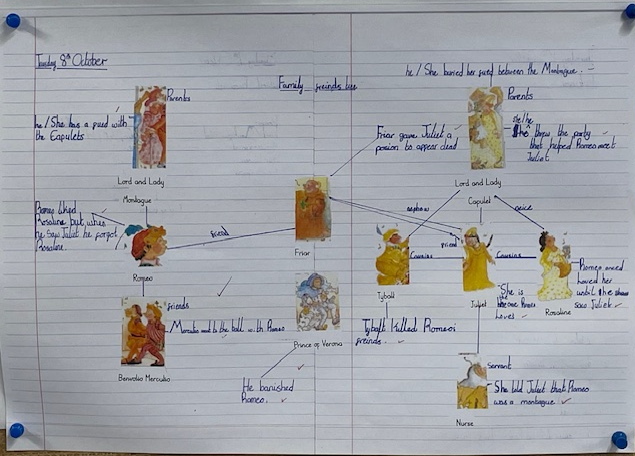 Tuesday 8th October
Family freinds tree
he / She buried her fued between the Montague.
Parents
he / She has a fued with
the Capulets
Lord and Lady
Montague
Friar gave Juliet a
posion to appear dead
Parents
She/he
threw the party
that helped Romeo meet
Juliet
Lord and Lady
Capulet
nephew
neice
Romeo liked
Rosaline but when
he saw Juliet he forgot
Rosaline.
Romeo
freind
Friar
friend
Cousins
Cousins
Tybalt
Juliet
Rosaline
She is
the one Romeo
loves
Romeo
loved her
until
saw Juliet
friends
Mercutio went to the ball with Romeo
Benvolio Mercutio
Prince of Verona
He banished
Romeo.
Tybalt killed Romeo
freinds.
servant
She told Juliet that Romeo
was a montague
Nurse